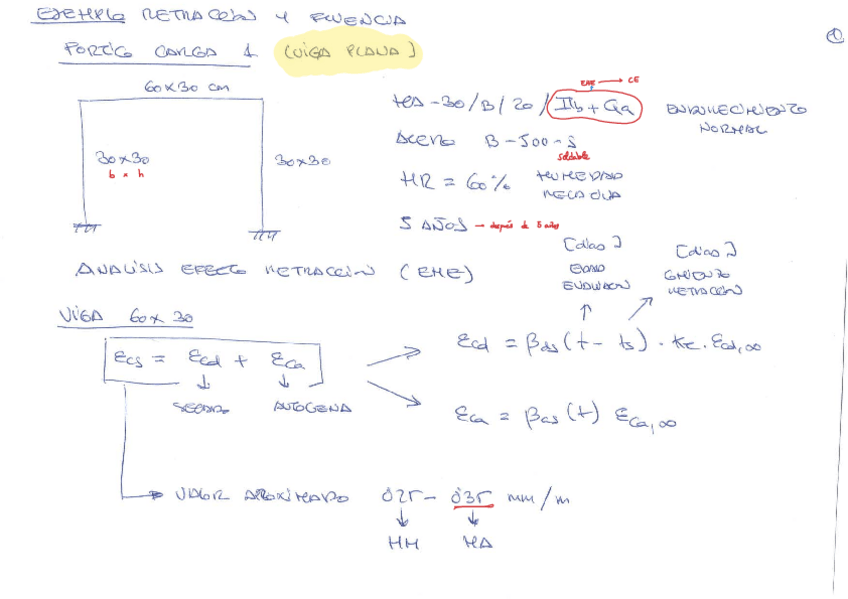 EJEMPLO RETRACCIÓN Y FLUENCIA
①
PORTICO CARGA 1 (VIGA PLANA)
60x30 cm
30x30
b x h
30x30
HA-30/B/20/IIb+Qa
EHE → CE
ENDURECIMIENTO NORMAL
ACERO B-500-S
soldable
HR = 60% HUMEDAD RELATIVA
5 AÑOS → después de 5 años
ANALISIS EFECTO RETRACCIÓN (EHE)
[días]
EDAD
EVALUACIÓN
[días]
COMIENZO
RETRACCIÓN
VIGA 60x30
εcs = εcd + εca
SECADO AUTOGENA
εcd = βds(t - ts) · Ke · εcd,∞
εca = βas(t) εca,∞
VALOR APROXIMADO 0'25 - 0'35 mm/m
HM HA